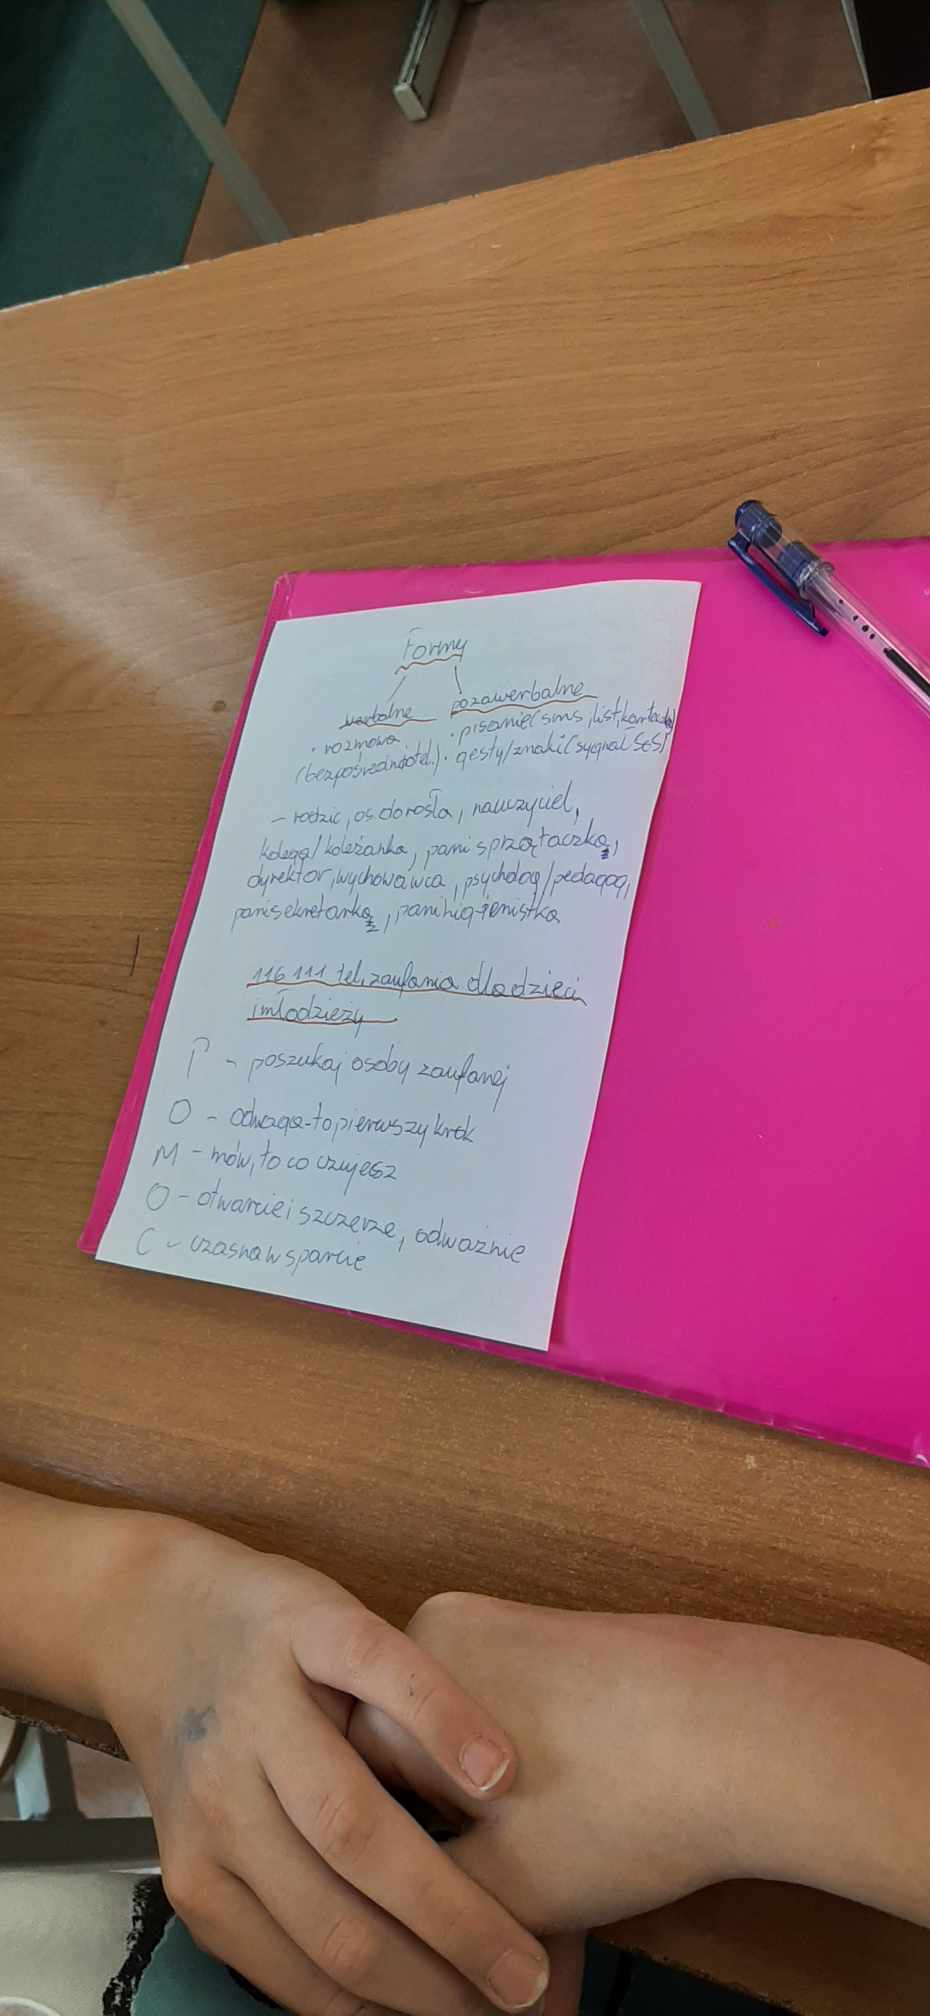 Formy
werbalne pozawerbalne
• rozmowa • pisanie (sms, list, karteczka)
(bezpośrednio, tel.) • gesty/znaki (sygnał SOS)
- rodzic, os dorosła, nauczyciel,
kolega/koleżanka, pani sprzątaczka,
dyrektor, wychowawca, psycholog/pedagog,
pani sekretarka, pani higienistka
116 111 tel. zaufania dla dzieci
i młodzieży
P - poszukaj osoby zaufanej
O - odwaga - to pierwszy krok
M - mów, to co czujesz
O - otwarcie i szczerze, odważnie
C - czas na wsparcie